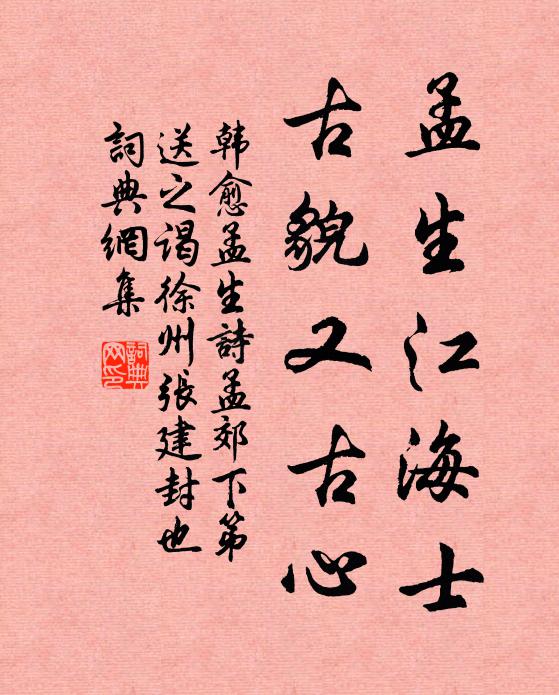 孟生江海士
古貌又古心
韩愈孟生詩孟郊下第
送之谒徐州張建封也
詞典網集
詞典网印